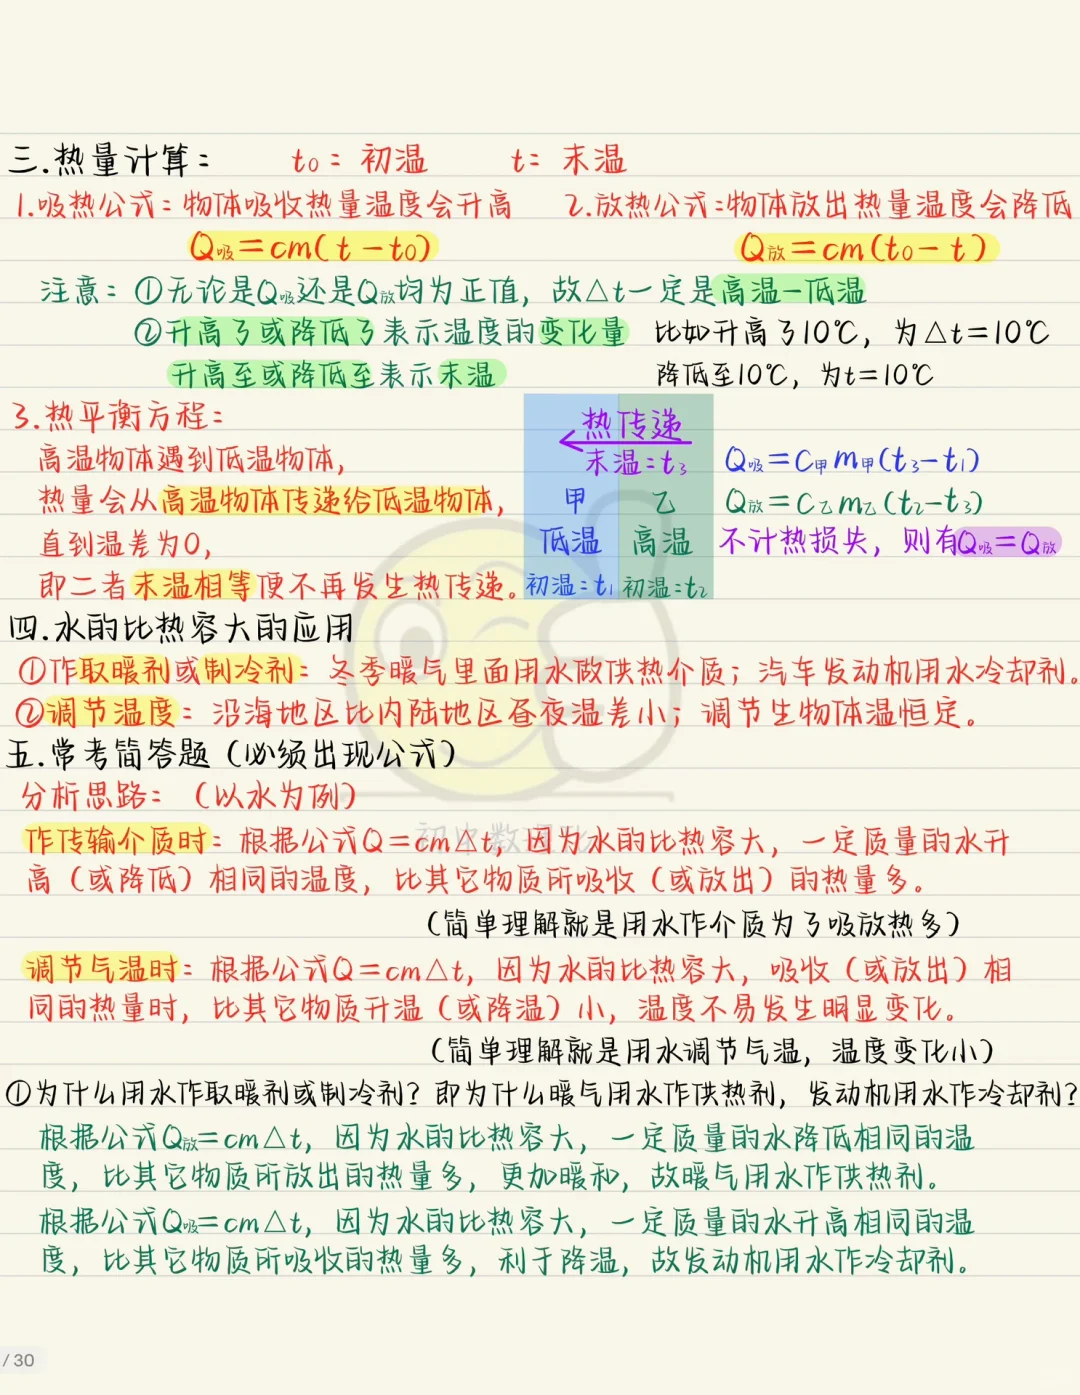 三.热量计算： t0：初温 t：末温
1.吸热公式：物体吸收热量温度会升高 2.放热公式：物体放出热量温度会降低
Q吸=cm(t-t0) Q放=cm(t0-t)
注意：①无论是Q吸还是Q放均为正值，故△t一定是高温-低温
②升高了或降低了表示温度的变化量 比如升高了10℃，为△t=10℃
升高至或降低至表示末温 降低至10℃，为t=10℃
3.热平衡方程：
高温物体遇到低温物体，
热量会从高温物体传递给低温物体，
直到温差为0，
即二者末温相等便不再发生热传递。
热传递
末温：t3 Q吸=C甲m甲(t3-t1)
甲 乙 Q放=C乙m乙(t2-t3)
低温 高温 不计热损失，则有Q吸=Q放
初温：t1 初温：t2
四.水的比热容大的应用
①作取暖剂或制冷剂：冬季暖气里面用水做供热介质；汽车发动机用水冷却剂。
②调节温度：沿海地区比内陆地区昼夜温差小；调节生物体温恒定。
五.常考简答题（必须出现公式）
分析思路：（以水为例）
作传输介质时：根据公式Q=cm△t，因为水的比热容大，一定质量的水升
高（或降低）相同的温度，比其它物质所吸收（或放出）的热量多。
（简单理解就是用水作介质为了吸放热多）
调节气温时：根据公式Q=cm△t，因为水的比热容大，吸收（或放出）相
同的热量时，比其它物质升温（或降温）小，温度不易发生明显变化。
（简单理解就是用水调节气温，温度变化小）
①为什么用水作取暖剂或制冷剂？即为什么暖气用水作供热剂，发动机用水作冷却剂？
根据公式Q放=cm△t，因为水的比热容大，一定质量的水降低相同的温
度，比其它物质所放出的热量多，更加暖和，故暖气用水作供热剂。
根据公式Q吸=cm△t，因为水的比热容大，一定质量的水升高相同的温
度，比其它物质所吸收的热量多，利于降温，故发动机用水作冷却剂。
/ 30